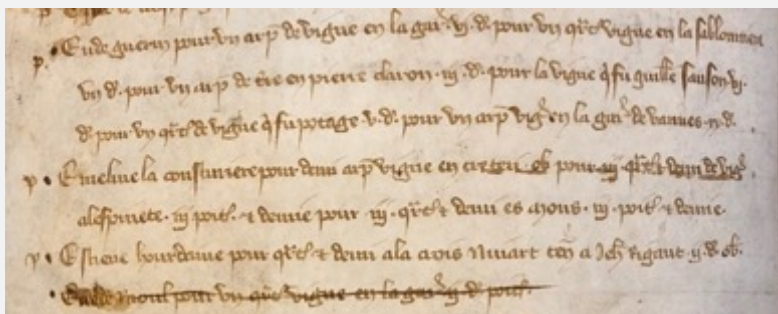 p. Eude guerin pour vn arp̄ de vigne en la gar̄. vj. d. pour vn qrt̄ vigne en la sablonniere
vij d. pour vn arp̄ de tr̄e en pierre claron. iij. d. pour la vigne q̄ fu guill̄e sanson vj.
d. pour vn qrt̄ de vigne q̄ fu potage. v. d. pour vn arp̄ viḡ en la gar̄ de vannes. ij. d.
p. Emeline la cousturiere pour demi arp̄ vigne en creteu. ob pour iij qrt̄ & demi de viḡ.
iij poit̄. & demie pour. iij. qrt̄ & demi es mons. iij. poit̄ & demie.
p. Estiene hourdame pour qrt̄ & demi a la crois niuart a Jeh̄ rigaut. ij. d. ob.
pour vn qrt̄ vigne en la gar̄ ij d. poit̄.